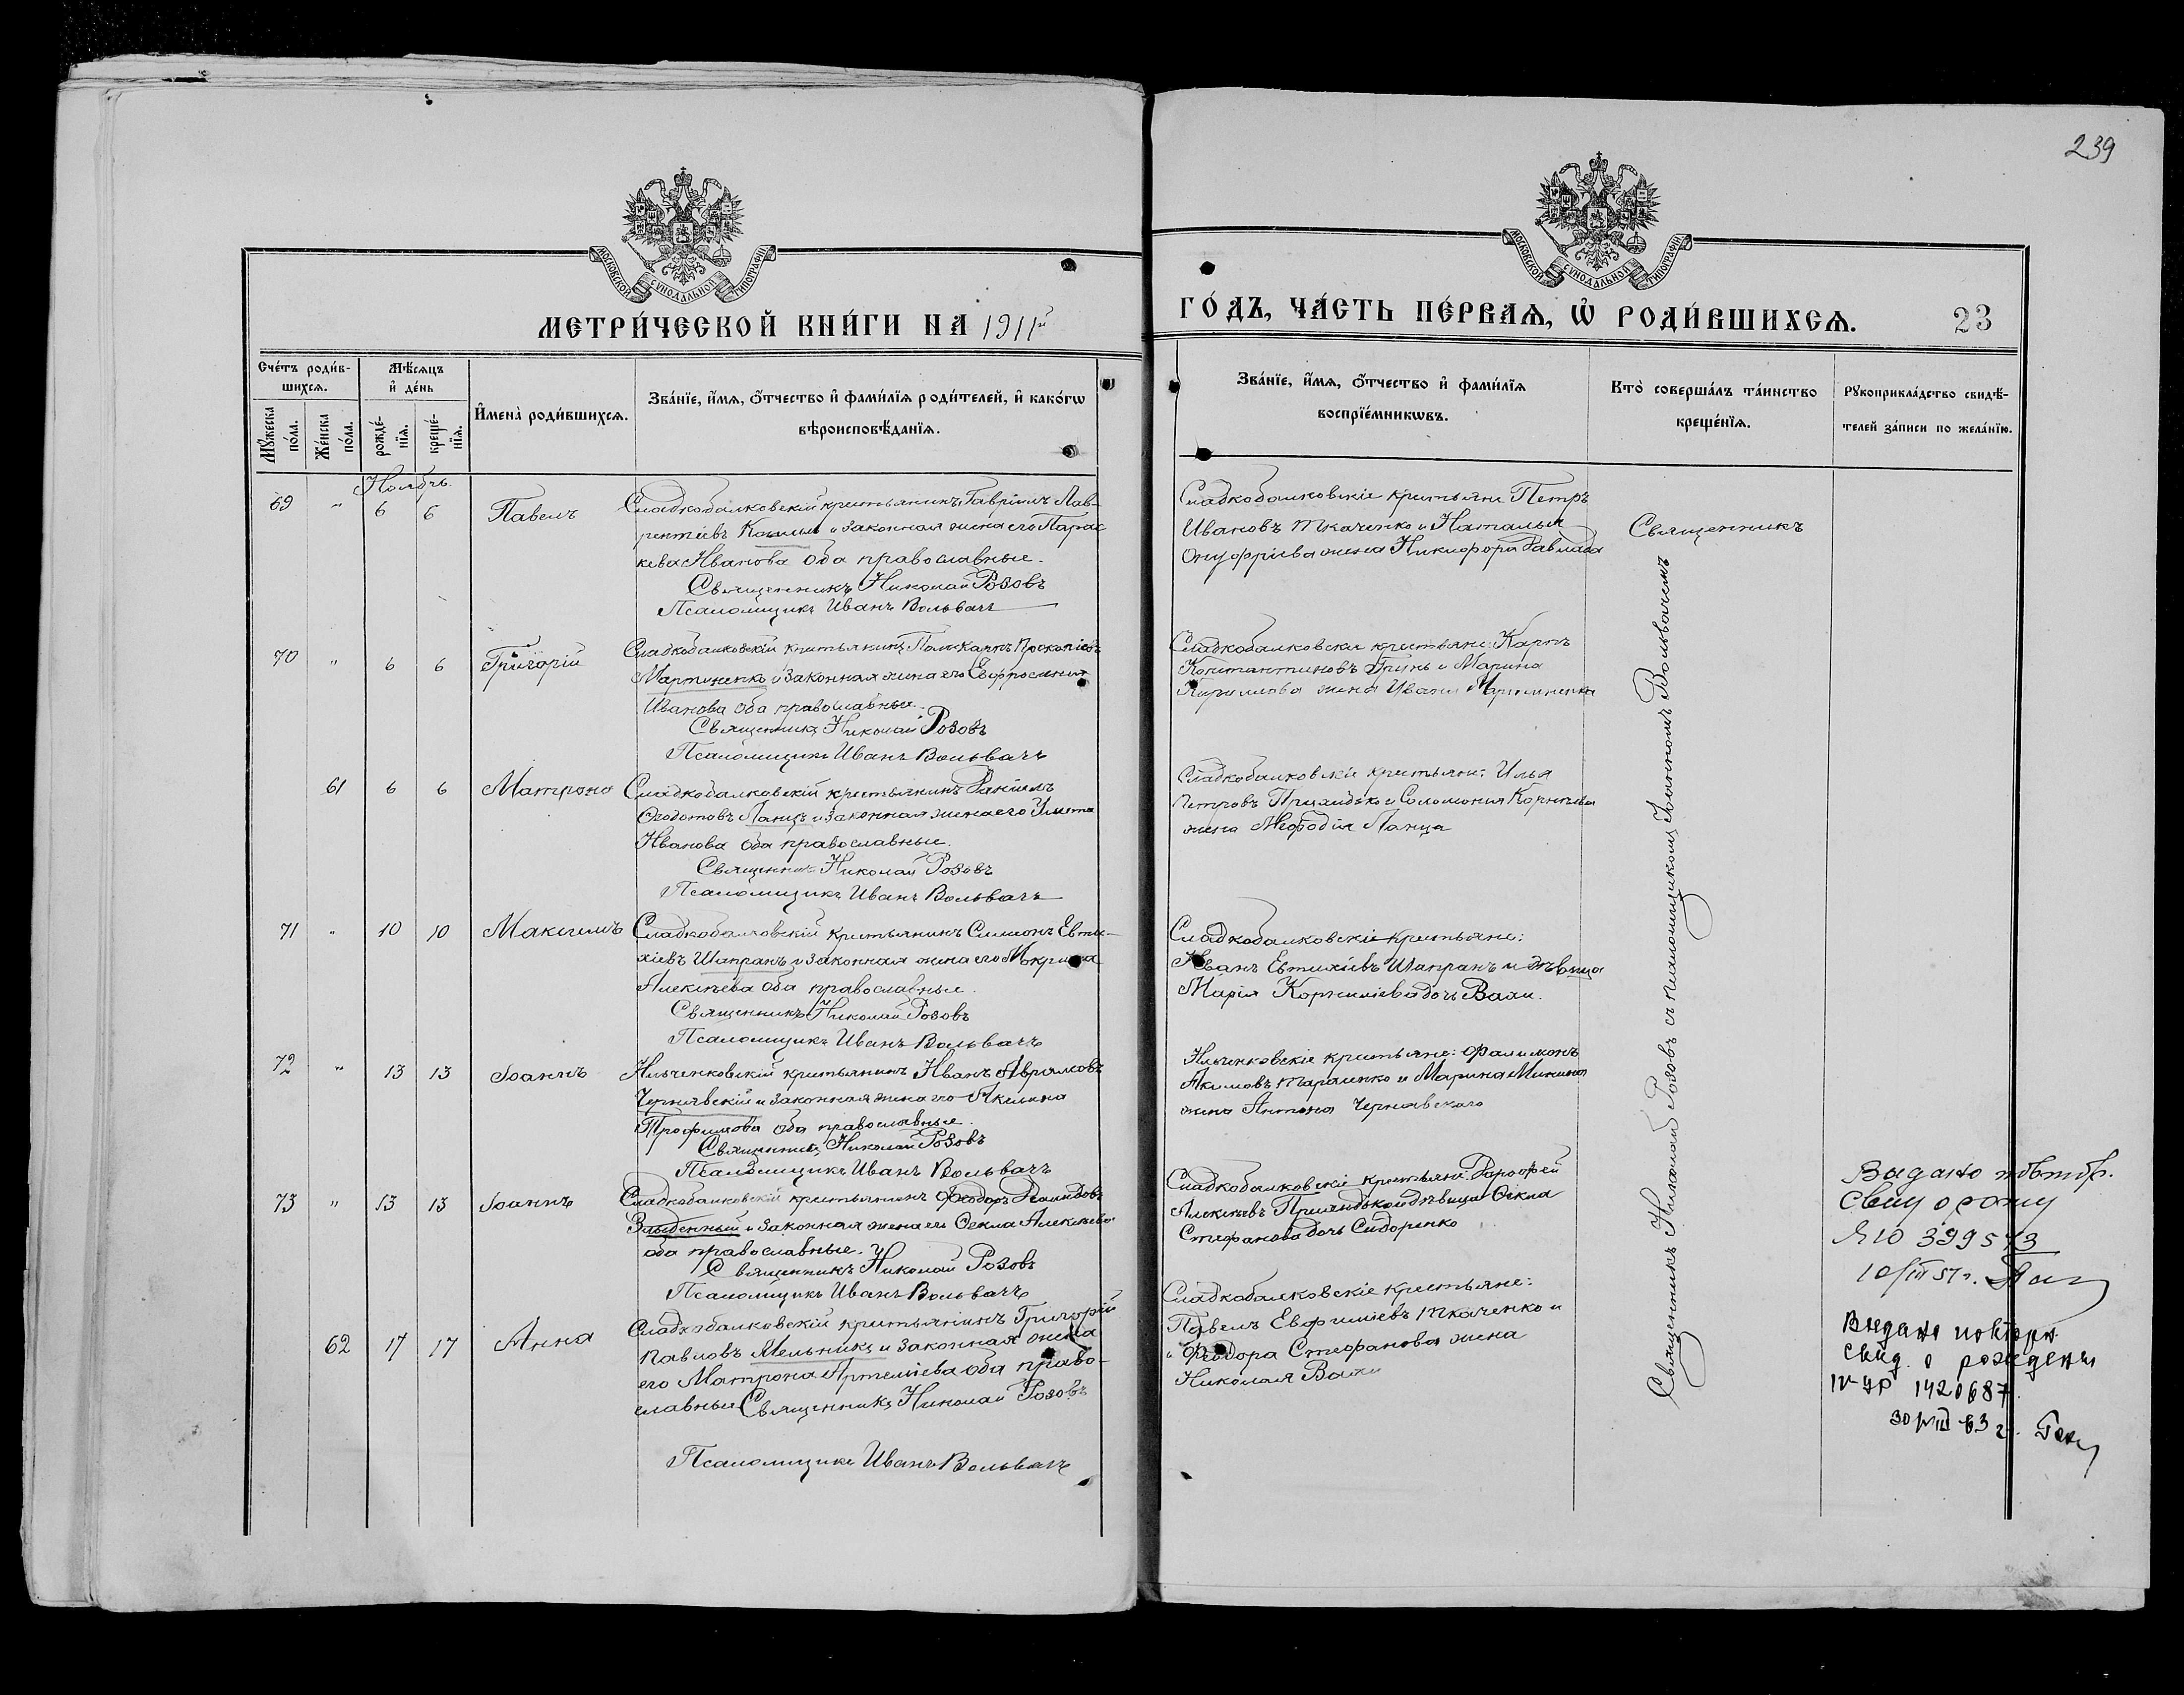 239
МОСКОВСКОЙ СѴНОДАЛЬНОЙ ТИПОГРАФІИ
МОСКОВСКОЙ СѴНОДАЛЬНОЙ ТИПОГРАФІИ
МЕТРИ́ЧЕСКОЙ КНИ́ГИ НА 1911й
ГО́ДЪ, ЧА́СТЬ ПЕ́РВАѦ, Ѡ҆ РОДИ́ВШИХСѦ.
23
Сче́тъ роди́в-
шихсѧ.
Мꙋ́жеска по́ла.
Же́нска по́ла.
Мѣ́сѧцъ
и҆ де́нь
рожде́-
нїѧ.
креще́-
нїѧ.
И҆мена̀ роди́вшихсѧ.
Зва́нїе, и҆́мѧ, ѻ҆́тчество и҆ фами́лїѧ роди́телей, и҆ како́гѡ
вѣроисповѣ́данїѧ.
Зва́нїе, и҆́мѧ, ѻ҆́тчество и҆ фами́лїѧ
воспрїе́мникѡвъ.
Кто̀ соверша́лъ та́инство
креще́нїѧ.
Рꙋкоприкла́дство свидѣ́-
телей за́писи по жела́нїю.
Ноябрь.
69 " 6 6 Павелъ
Сладкобалковскій крестьянинъ Гавріилъ Лав-
рентіевъ и законная жена его Парас
кева Иванова оба православные.
Священникъ Николай Розовъ
Псаломщикъ Иванъ Вольвачъ
Сладкобалковскіе крестьяне Петръ
Ивановъ Ткаченко и Наталья
Онуфріева жена Никифора
Священникъ
70 " 6 6 Григорій
Сладкобалковскій крестьянинъ Поликарпъ Прокопіевъ
Мартыненко и законная жена его Евфросинія
Иванова оба православные.
Священникъ Николай Розовъ
Псаломщикъ Иванъ Вольвачъ
Сладкобалковскіе крестьяне: Карпъ
Константиновъ Грунь и Марина
Кириллова жена Ивана Мартыненка
61 6 6 Матрона
Сладкобалковскій крестьянинъ Даніилъ
Ѳеодотовъ Ланцъ и законная жена его Улита
Иванова оба православные.
Священникъ Николай Розовъ
Псаломщикъ Иванъ Вольвачъ
Сладкобалковскіе крестьяне: Илья
Петровъ и Соломонія Корнѣева
жена Меѳодія Ланца
71 " 10 10 Максимъ
Сладкобалковскій крестьянинъ Симеонъ Евти-
хіевъ Шапранъ и законная жена его Макрина
Алексѣева оба православные.
Священникъ Николай Розовъ
Псаломщикъ Иванъ Вольвачъ
Сладкобалковскіе крестьяне:
Иванъ Евтихіевъ Шапранъ и дѣвица
Марія Корниліева дочь Вахи.
72 " 13 13 Іоаннъ
Ильченковскій крестьянинъ Иванъ Аврамовъ
Чернявскій и законная жена его Акилина
Трофимова оба православные.
Священникъ Николай Розовъ
Псаломщикъ Иванъ Вольвачъ
Ильченковскіе крестьяне: Филимонъ
Акимовъ Тараненко и Марина Микиина
жена Антона Чернявскаго
73 " 13 13 Іоаннъ
Сладкобалковскій крестьянинъ Ѳеодоръ
Злыденный и законная жена его Ѳекла Алексѣева
оба православные.
Священникъ Николай Розовъ
Псаломщикъ Иванъ Вольвачъ
Сладкобалковскіе крестьяне: Дороѳей
Алексѣевъ и дѣвица Ѳекла
Стефанова дочь Сидоренко
Видано повтор.
№ Ю 399573
10/III 57 г.
62 17 17 Анна
Сладкобалковскій крестьянинъ Григорій
Павловъ Мельникъ и законная жена
его Матрона Артеміева оба право-
славные Священникъ Николай Розовъ
Псаломщикъ Иванъ Вольвачъ
Сладкобалковскіе крестьяне:
Павелъ Евфиміевъ Ткаченко и
Ѳеодора Стефанова жена
Николая Вахи
Видано повторн.
свид. о рождении
IV-УР 1420687
30/VIII 63 г.
Священникъ Николай Розовъ съ псаломщикомъ Іоанномъ Вольвачемъ